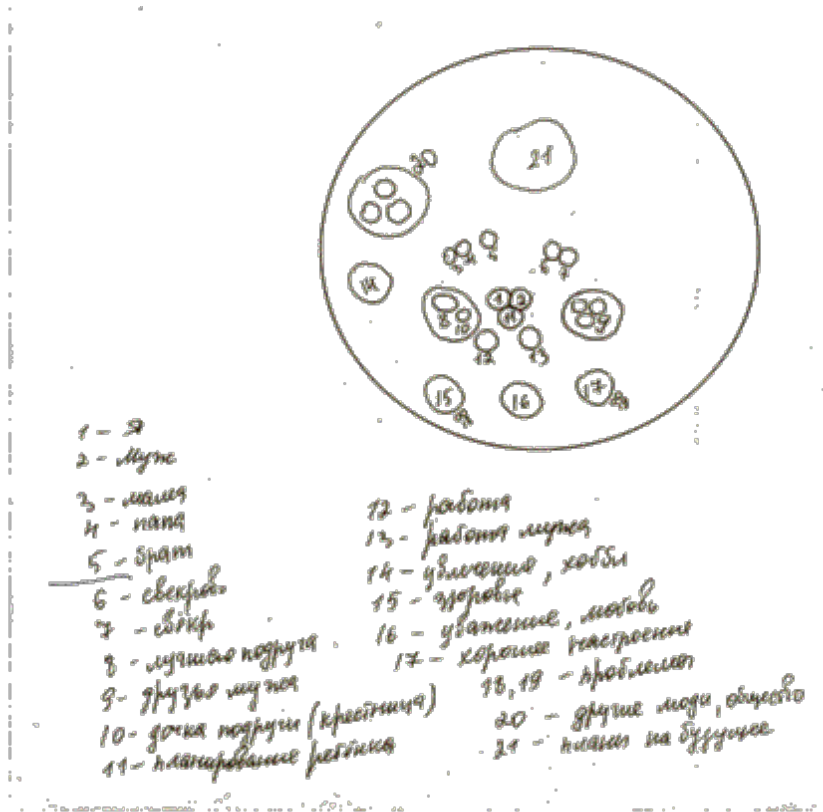 20
21
3 4 5 6 7
14
1 2
8 10 11 9
12 13
15 16 17
18 19
1 - Я
2 - Муж
3 - мама
4 - папа
5 - брат
6 - свекровь
7 - свёкр
8 - лучшая подруга
9 - друзья мужа
10 - дочка подруги (крестница)
11 - планирование ребёнка
12 - работа
13 - работа мужа
14 - увлечения, хобби
15 - здоровье
16 - уважение, любовь
17 - хорошее настроение
18, 19 - проблемы
20 - другие люди, общество
21 - планы на будущее